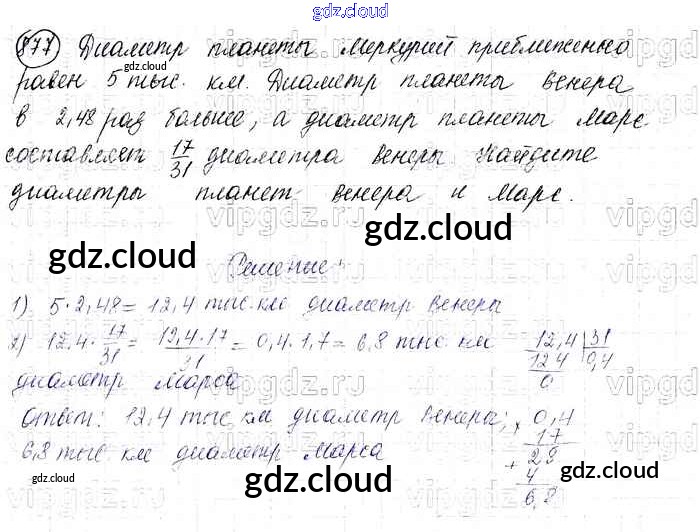 gdz.cloud
877 Диаметр планеты Меркурий приближенно
равен 5 тыс. км. Диаметр планеты Венера
gdz.cloud
в 2,48 раз больше, а диаметр планеты Марс
составляет 17/31 диаметра Венеры Найдите
диаметры планет Венера и Марс.
vipgdz.ru
gdz.cloud
gdz.cloud
gdz.cloud
Решение:
1) 5·2,48=12,4 тыс.км диаметр Венеры
2) 12,4·17/31=12,4·17/31=0,4·1,7=6,8 тыс км
диаметр Марса
12,4 31
12 4 0,4
0
Ответ: 12,4 тыс км диаметр Венеры;
6,8 тыс. км диаметр Марса
× 0,4
17
+ 28
4
6,8
gdz.cloud
gdz.cloud
gdz.cloud